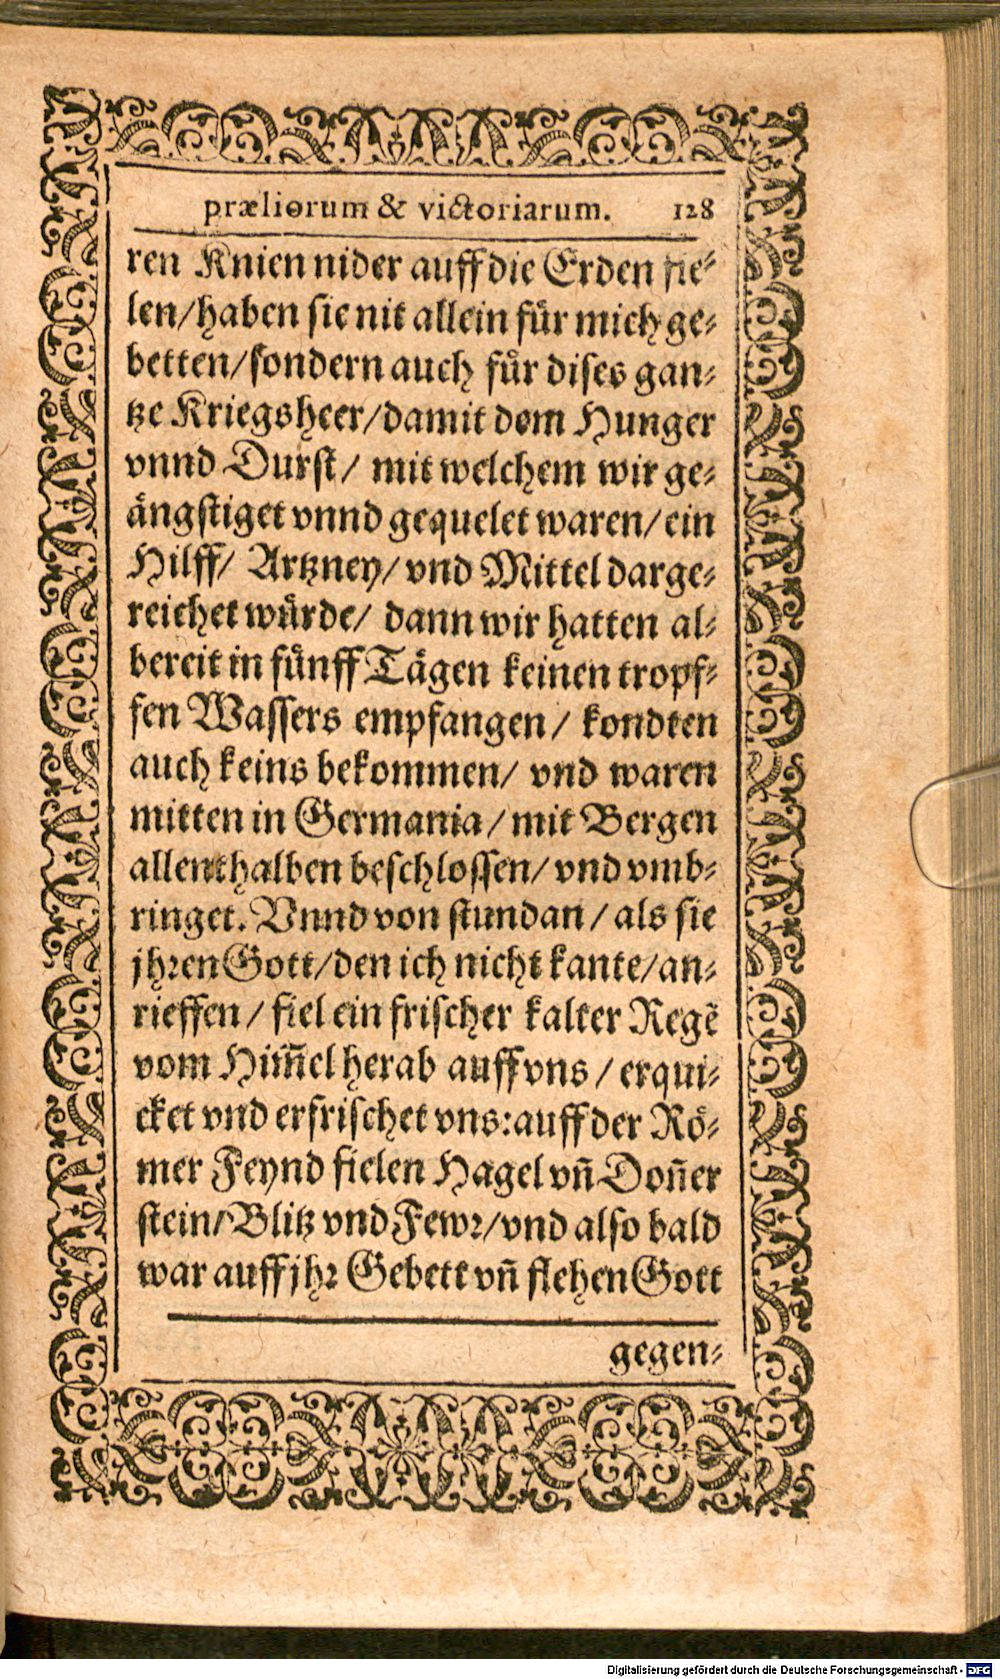 præliorum & victoriarum. 128
ren Knien nider auff die Erden fie⸗
len/haben sie nit allein fuͤr mich ge⸗
betten/sondern auch fuͤr dises gan⸗
tze Kriegsheer/damit dem Hunger
vnnd Durst/ mit welchem wir ge⸗
aͤngstiget vnnd gequelet waren/ein
Hilff/ Artzney/ vnd Mittel darge⸗
reichet wuͤrde/ dann wir hatten al⸗
bereit in fuͤnff Taͤgen keinen tropf⸗
fen Wassers empfangen/ kondten
auch keins bekommen/ vnd waren
mitten in Germania/ mit Bergen
allenthalben beschlossen/ vnd vmb⸗
ringet. Vnnd von stundan/ als sie
jhren Gott/den ich nicht kante/an⸗
rieffen/ fiel ein frischer kalter Regẽ
vom Him̃el herab auff vns/ erqui⸗
cket vnd erfrischet vns:auff der Roͤ⸗
mer Feynd fielen Hagel vñ Doñer
stein/Blitz vnd Fewr/vnd also bald
war auff jhr Gebett vñ flehen Gott
gegen⸗
Digitalisierung gefördert durch die Deutsche Forschungsgemeinschaft - DFG